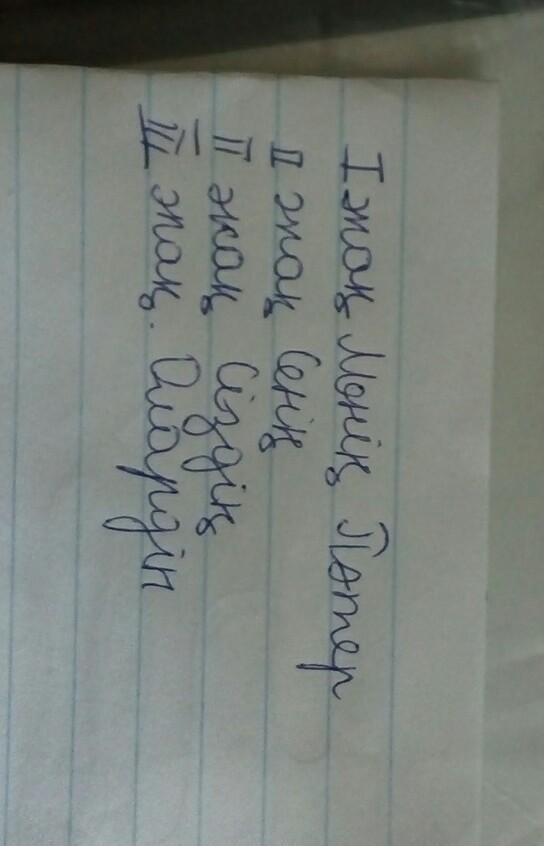 I жақ Менің Пәтер
II жақ Сенің
II жақ Сіздің
III жақ. Олардін